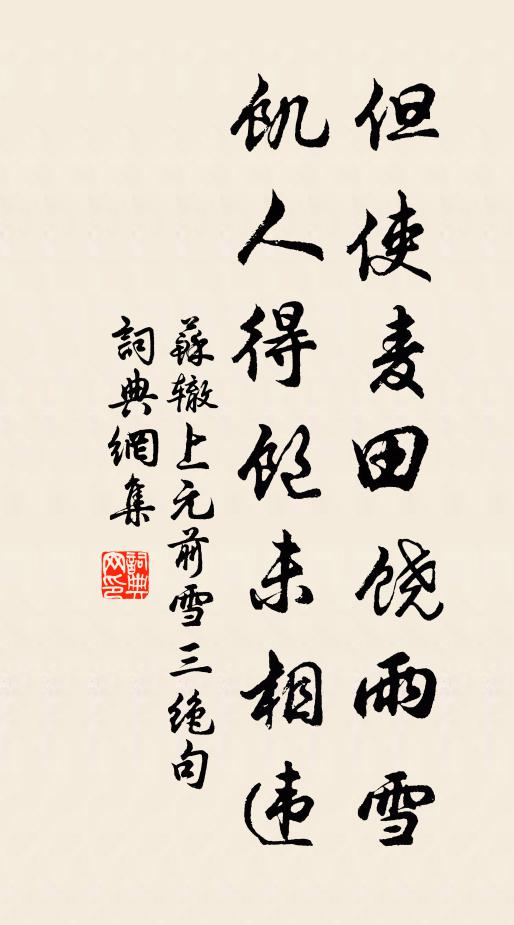 但使麦田饶雨雪
饥人得饱未相违
蘇辙上元前雪三绝句
詞典網集
詞典网印